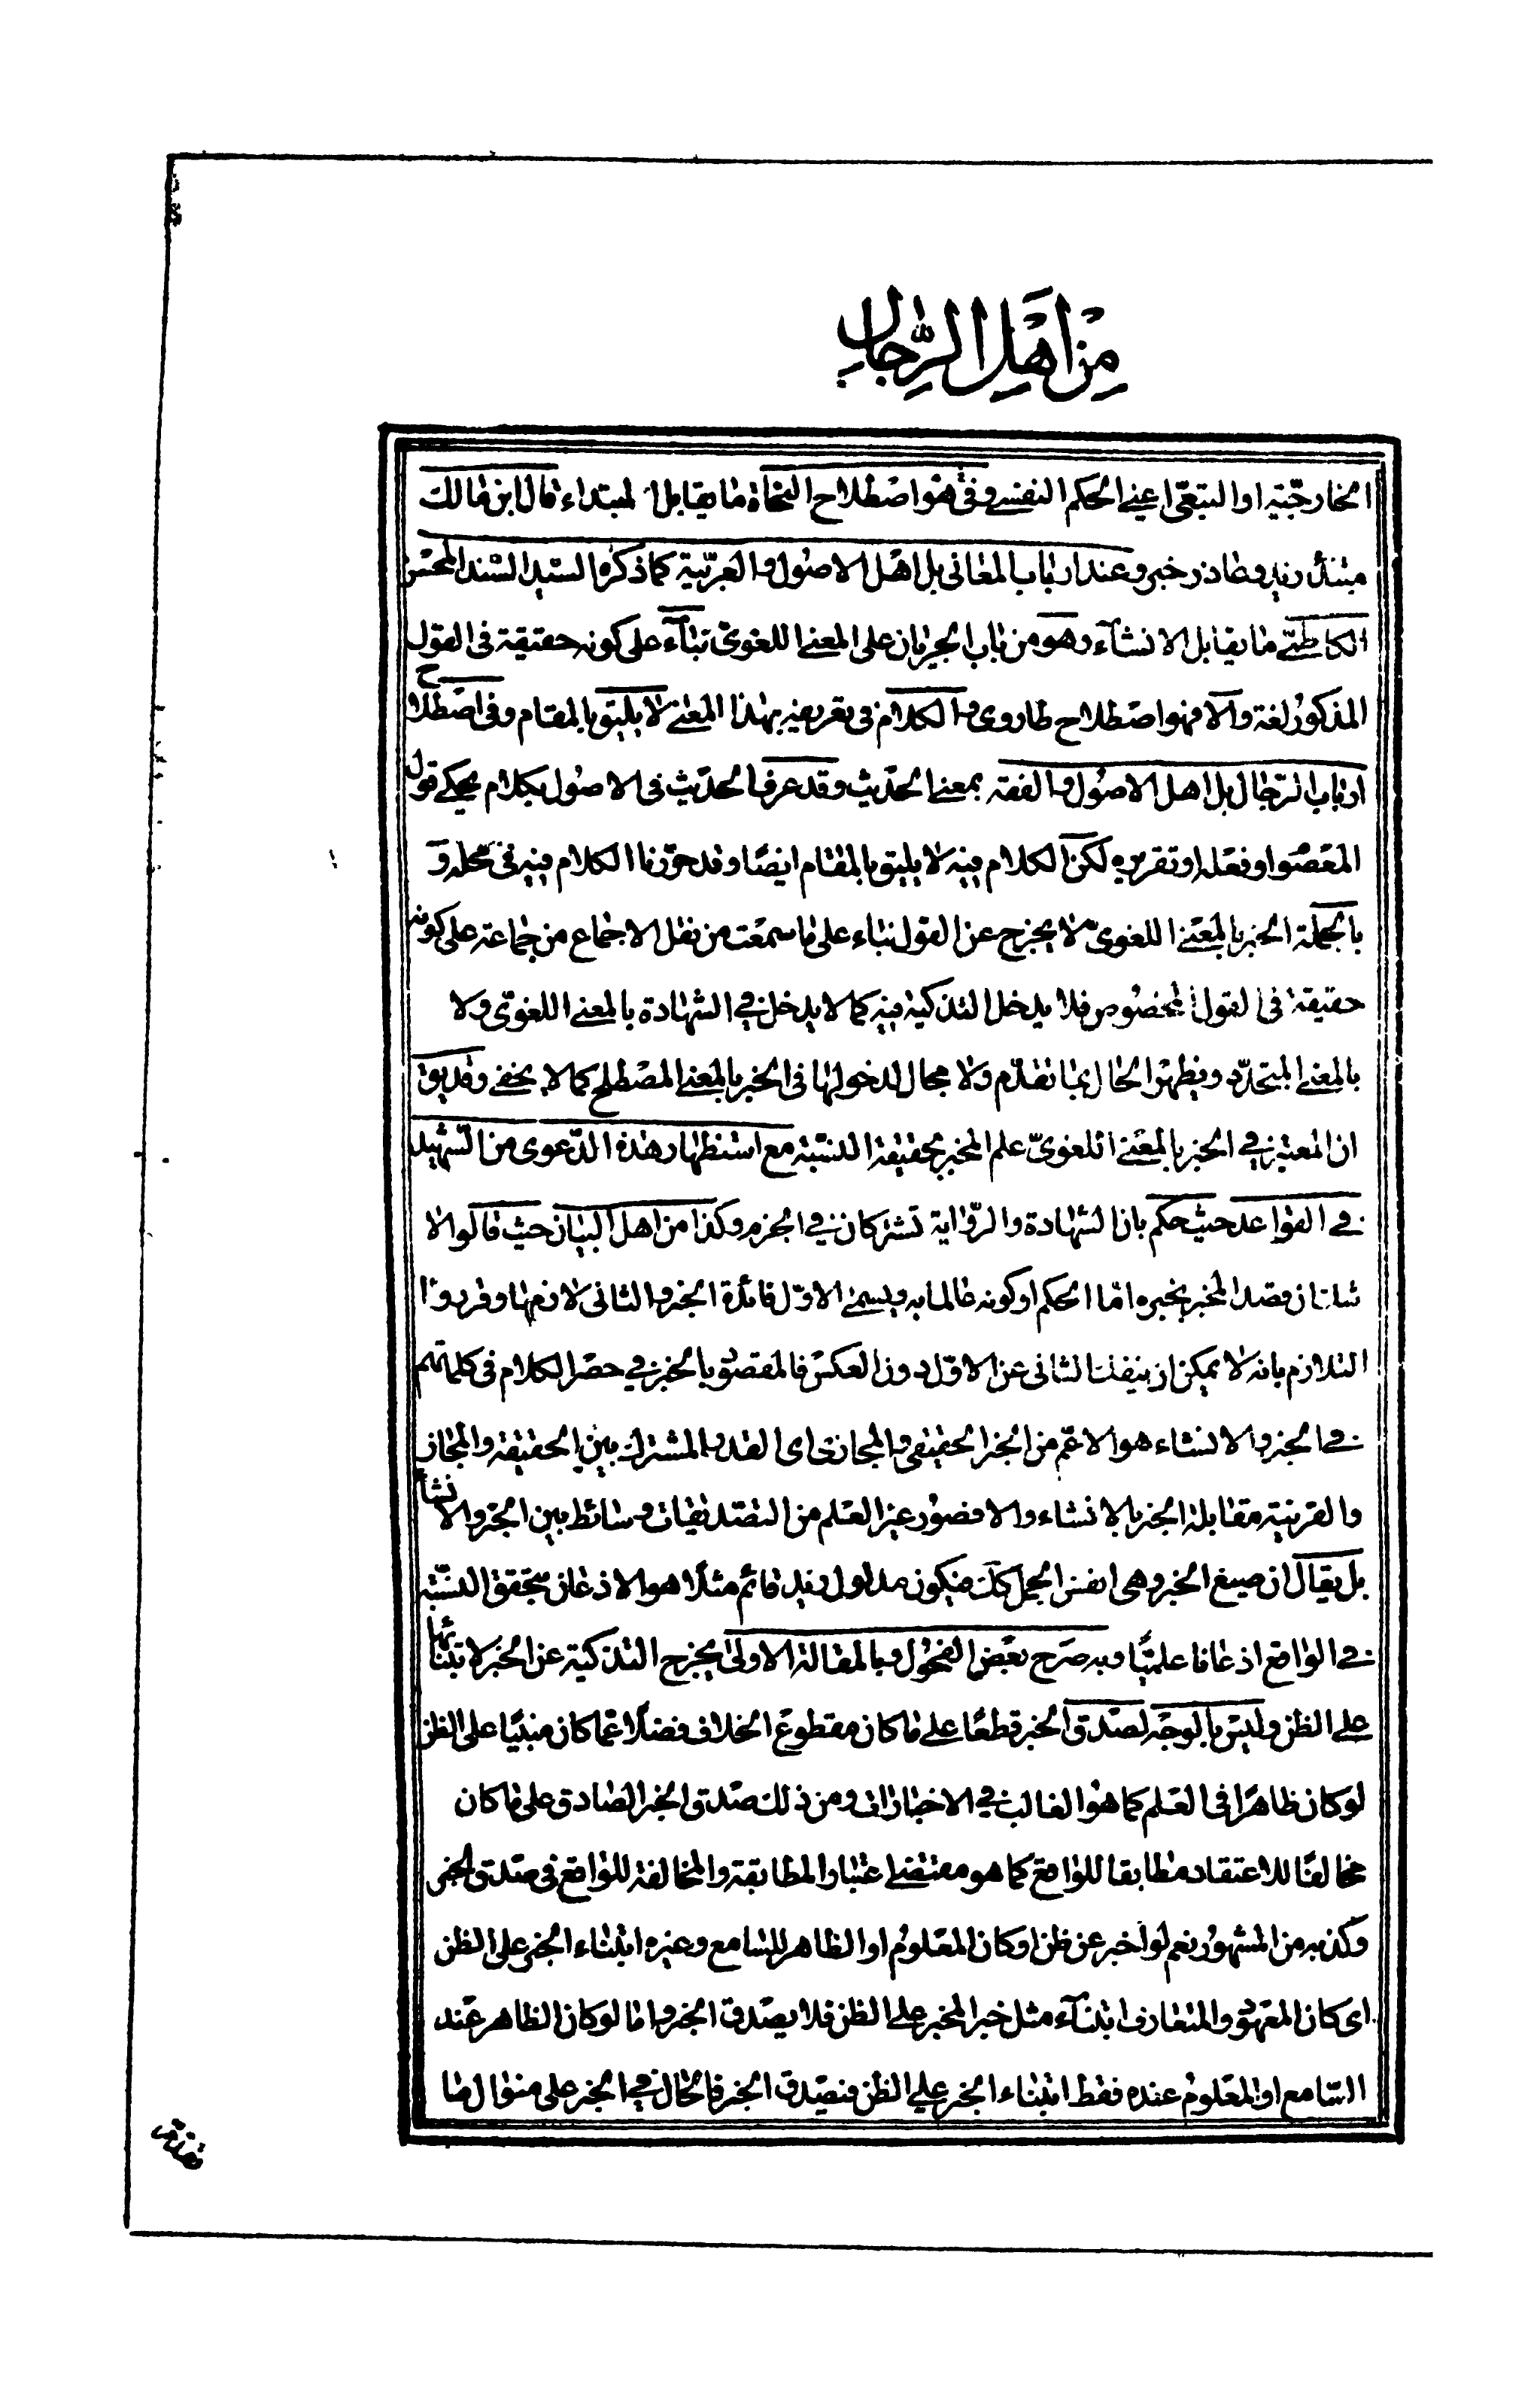 من اهل الرجال
الخارجيّة او التبعّى اعنى الحكم النفسى وفى هو اصطلاح النحاة ما يقابل المبتداء قال ابن مالك
مبتدأ زيد وعاذر خبر وعند ارباب المعانى بل اهل الاصول والعربيّة كما ذكره السيد السند المحسن
الكاظمى ما يقابل الانشآء وهو من باب الجريان على المعنى اللغوىّ بنآء على كونه حقيقة فى القول
المذكور لغة والا فهو اصطلاح طار وى والكلام فى تعريفه بهذا المعنى لا يليق بالمقام وفى اصطلاح
ارباب الرّجال بل اهل الاصول والفقه بمعنى الحديث وقد عرف الحديث فى الاصول بكلام يحكى قول
المعصوم او فعله او تقريره لكن الكلام فيه لا يليق بالمقام ايضا وقد حرّرنا الكلام فيه فى محله و
بالجملة الخبر بالمعنى اللغوىّ لا يخرج عن القول بناء على ما سمعت من نقل الاجماع من جماعة على كونه
حقيقة فى القول المخصوص فلا يدخل التذكية فيه كما لا يدخل فى الشهادة بالمعنى اللغوىّ ولا
بالمعنى المتجدّد ويظهر الحال بما تقدّم ولا مجال لدخولها فى الخبر بالمعنى المصطلح كما لا يخفى وقد يق
ان المعتبر فى الخبر بالمعنى اللغوىّ علم المخبر بحقيقة النسبة مع استظهار هذه الدّعوى من الشهيد
فى القواعد حيث حكم بان الشهادة والرّواية تشتركان فى الجزم وكذا من اهل البيان حيث قالوا لا
شك ان قصد المخبر بخبره امّا الحكم او كونه عالما به ويسمى الاوّل فائدة الخبر والثانى لازمها وقرروا
التلازم بانه لا يمكن ان ينفك الثانى عن الاوّل دون العكس فالمقصود بالخبر فى حصر الكلام فى كلماتهم
فى الخبر والانشاء هو الاعّم من الخبر الحقيقى والمجازى اى القدر المشترك بين الحقيقة والمجاز
والقرينة مقابلة الخبر بالانشاء والا فصور غير العلم من التصديقات وسائط بين الخبر والانشآء
بل يقال ان صيغ الخبر وهى انفس الجمل كك فيكون مدلول زيد قائم مثلا هو الاذعان بتحقق النسبة
فى الواقع اذعانا علميّا وبه صرح بعض الفحول وبالمقالة الاولى يخرج التذكية عن الخبر لابتنائها
على الظن وليس بالوجه لصدق الخبر قطعًا على ما كان مقطوع الخلاف فضلًا عمّا كان مبنيّا على الظن
لو كان ظاهرا فى العلم كما هو الغالب فى الاخبارات ومن ذلك صدق الخبر الصادق على ما كان
مخالفًا للاعتقاد مطابقا للواقع كما هو مقتضى اعتبار المطابقة والمخالفة للواقع فى صدق الخبر
وكذبه من المشهور نعم لو اخبر عن ظن او كان المعلوم او الظاهر للسّامع وغيره ابتناء الخبر على الظن
اى كان المعهود والمتعارف ابتنآء مثل خبر المخبر على الظن فلا يصدق الخبر واما لو كان الظاهر عند
السّامع او المعلوم عنده فقط ابتناء الخبر على الظن فيصدق الخبر فالحال فى الخبر على منوال ما